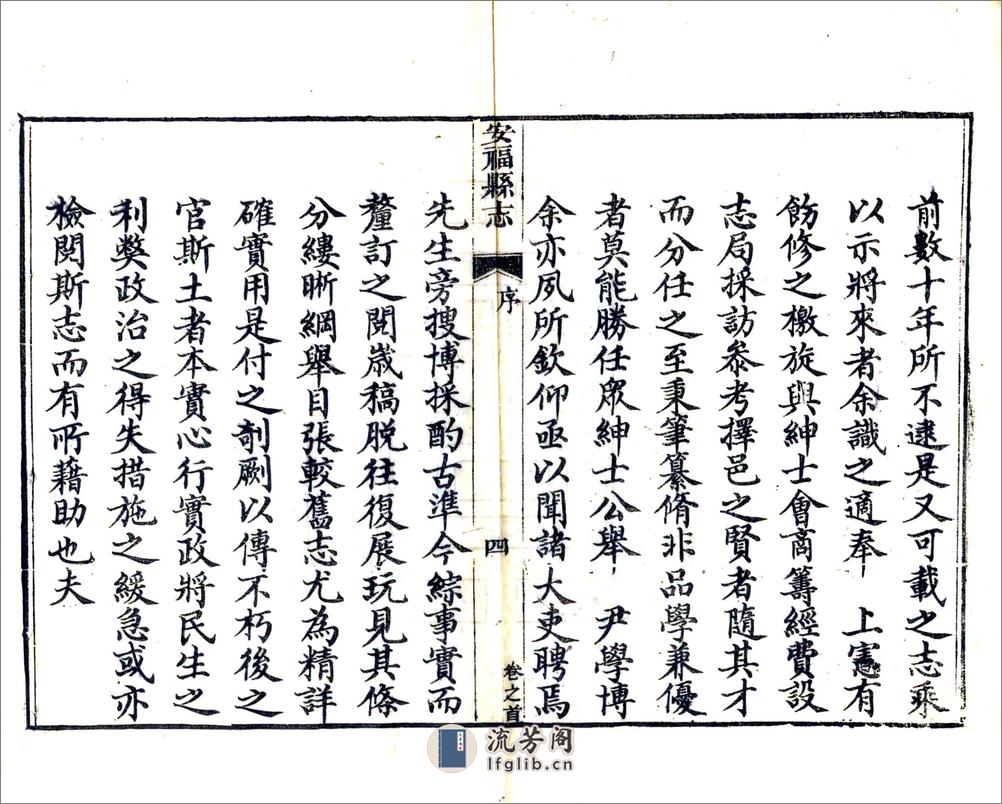 前數十年所不逮是又可載之志乘
以示將來者余識之適奉　上憲有
飭修之檄旋與紳士會商籌經費設
志局採訪叅考擇邑之賢者隨其才
而分任之至秉筆纂脩非品學兼優
者莫能勝任眾紳士公舉　尹學博
余亦夙所欽仰亟以聞諸大吏聘焉
安福縣志
序
四
卷之首
先生旁搜博採酌古準今綜事實而
釐訂之閱歲稿脫往復展玩見其條
分縷晰綱舉目張較舊志尤為精詳
確實用是付之剞劂以傳不朽後之
官斯土者本實心行實政將民生之
利獘政治之得失措施之緩急或亦
檢閱斯志而有所藉助也夫
流芳阁
lfglib.cn